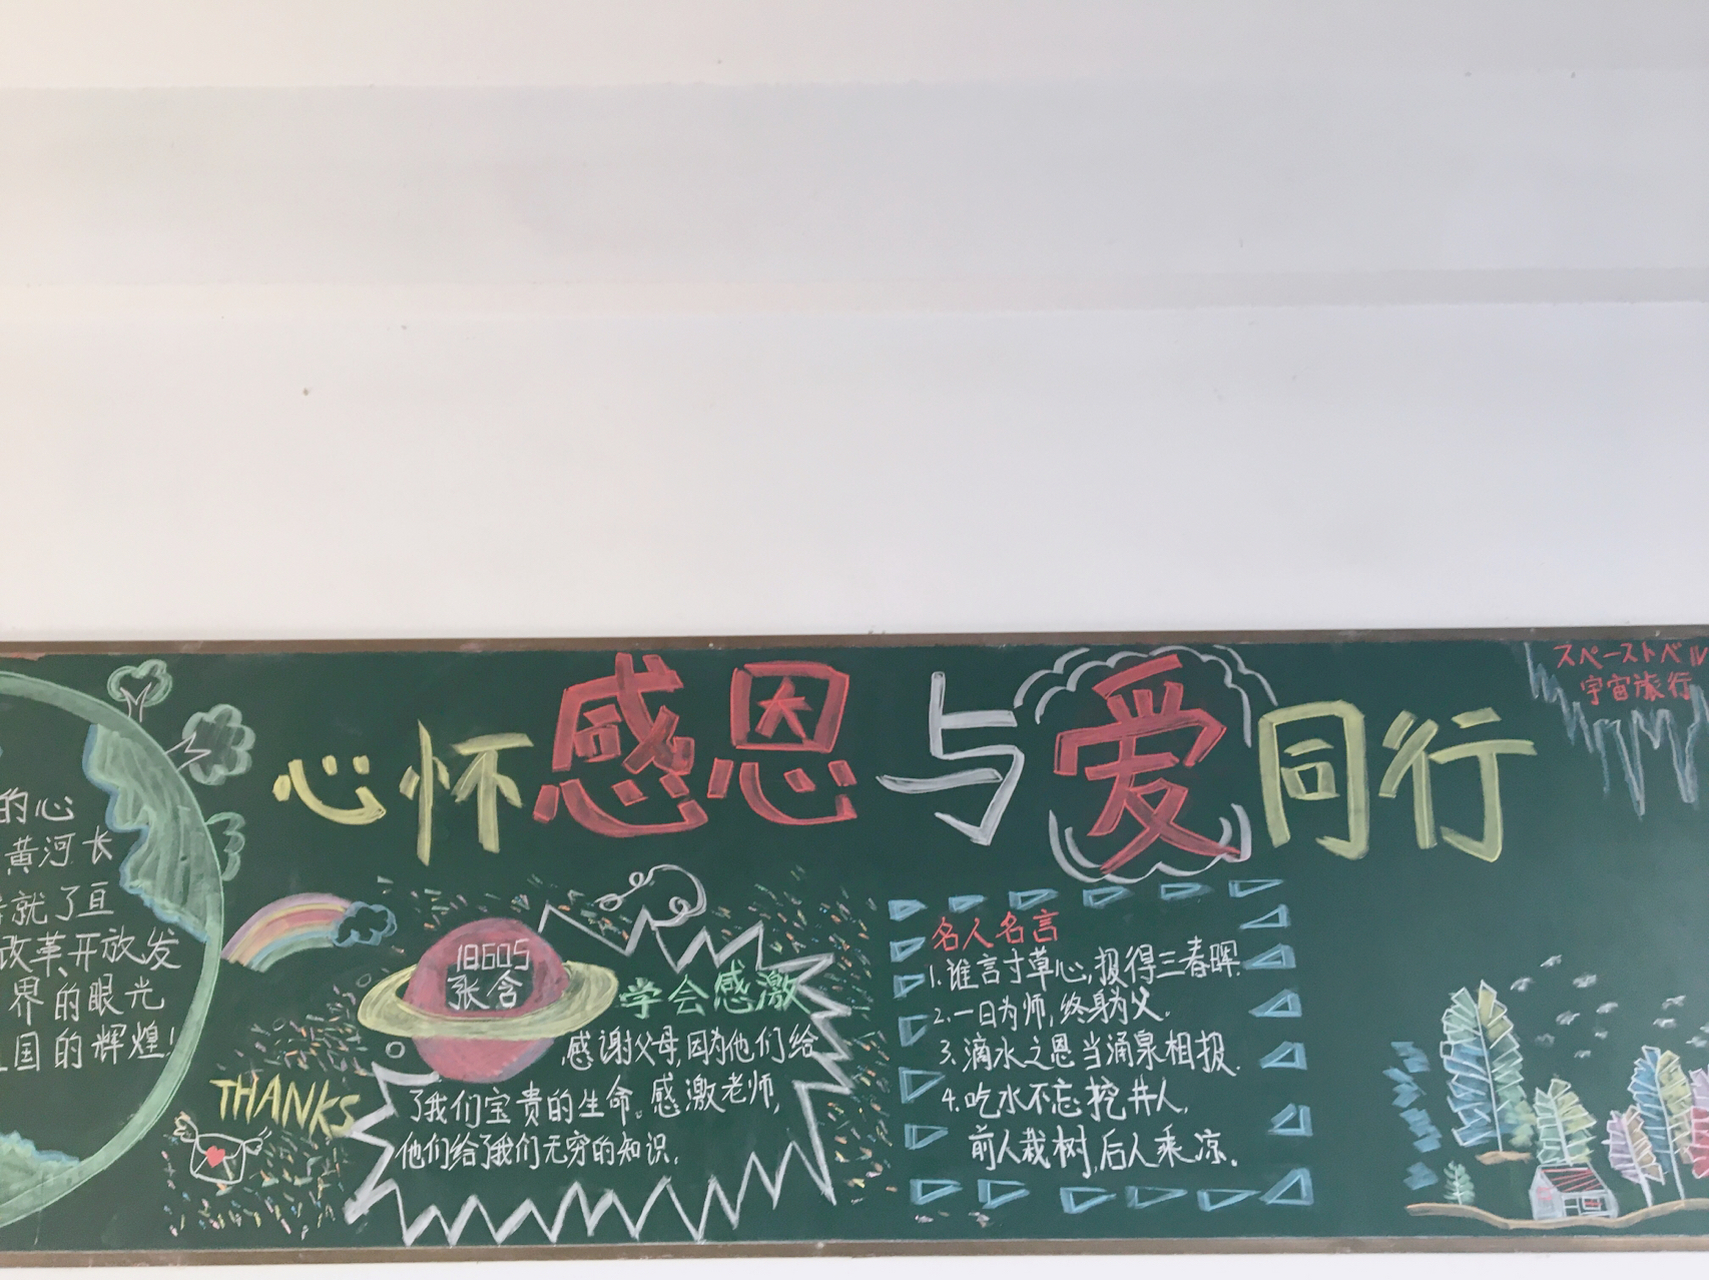 心怀感恩与爱同行
スペーストベル
宇宙旅行
的心
黄河长
就了亘
改革开放发
界的眼光
国的辉煌!
THANKS
18605
张含
学会感激
感谢父母,因为他们给
了我们宝贵的生命。感激老师,
他们给了我们无穷的知识.
名人名言
1.谁言寸草心,报得三春晖.
2.一日为师,终身为父.
3.滴水之恩当涌泉相报.
4.吃水不忘挖井人,
前人栽树,后人乘凉.